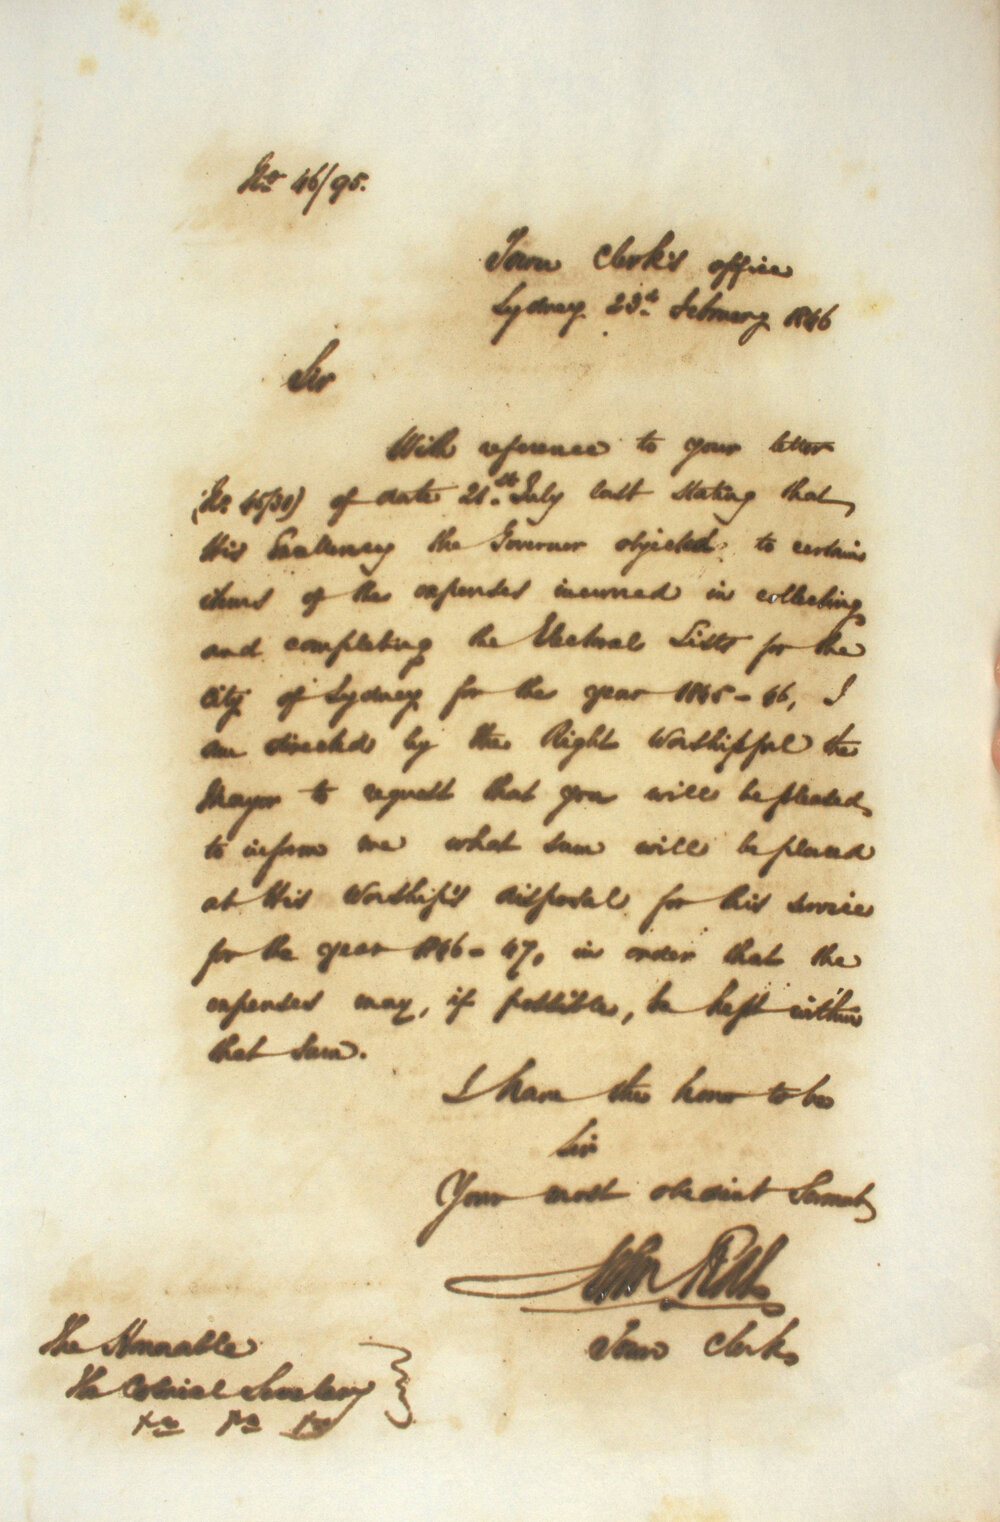 No 46/95.
Town Clerk's office
Sydney 23d. February 1846
Sir
With reference to your letter
(No 45/31) of date 21st. July last stating that
His Excellency the Governor objected to certain
items of the expenses incurred in collecting
and completing the Electoral Lists for the
City of Sydney for the year 1845-46, I
am directed by the Right Worshipful the
Mayor to request that you will be pleased
to inform me what sum will be placed
at His Worship's disposal for this service
for the year 1846-47, in order that the
expenses may, if possible, be kept within
that sum.
I have the honor to be
Sir
Your most obedient Servant
John
Town Clerk
The Honorable
The Colonial Secretary